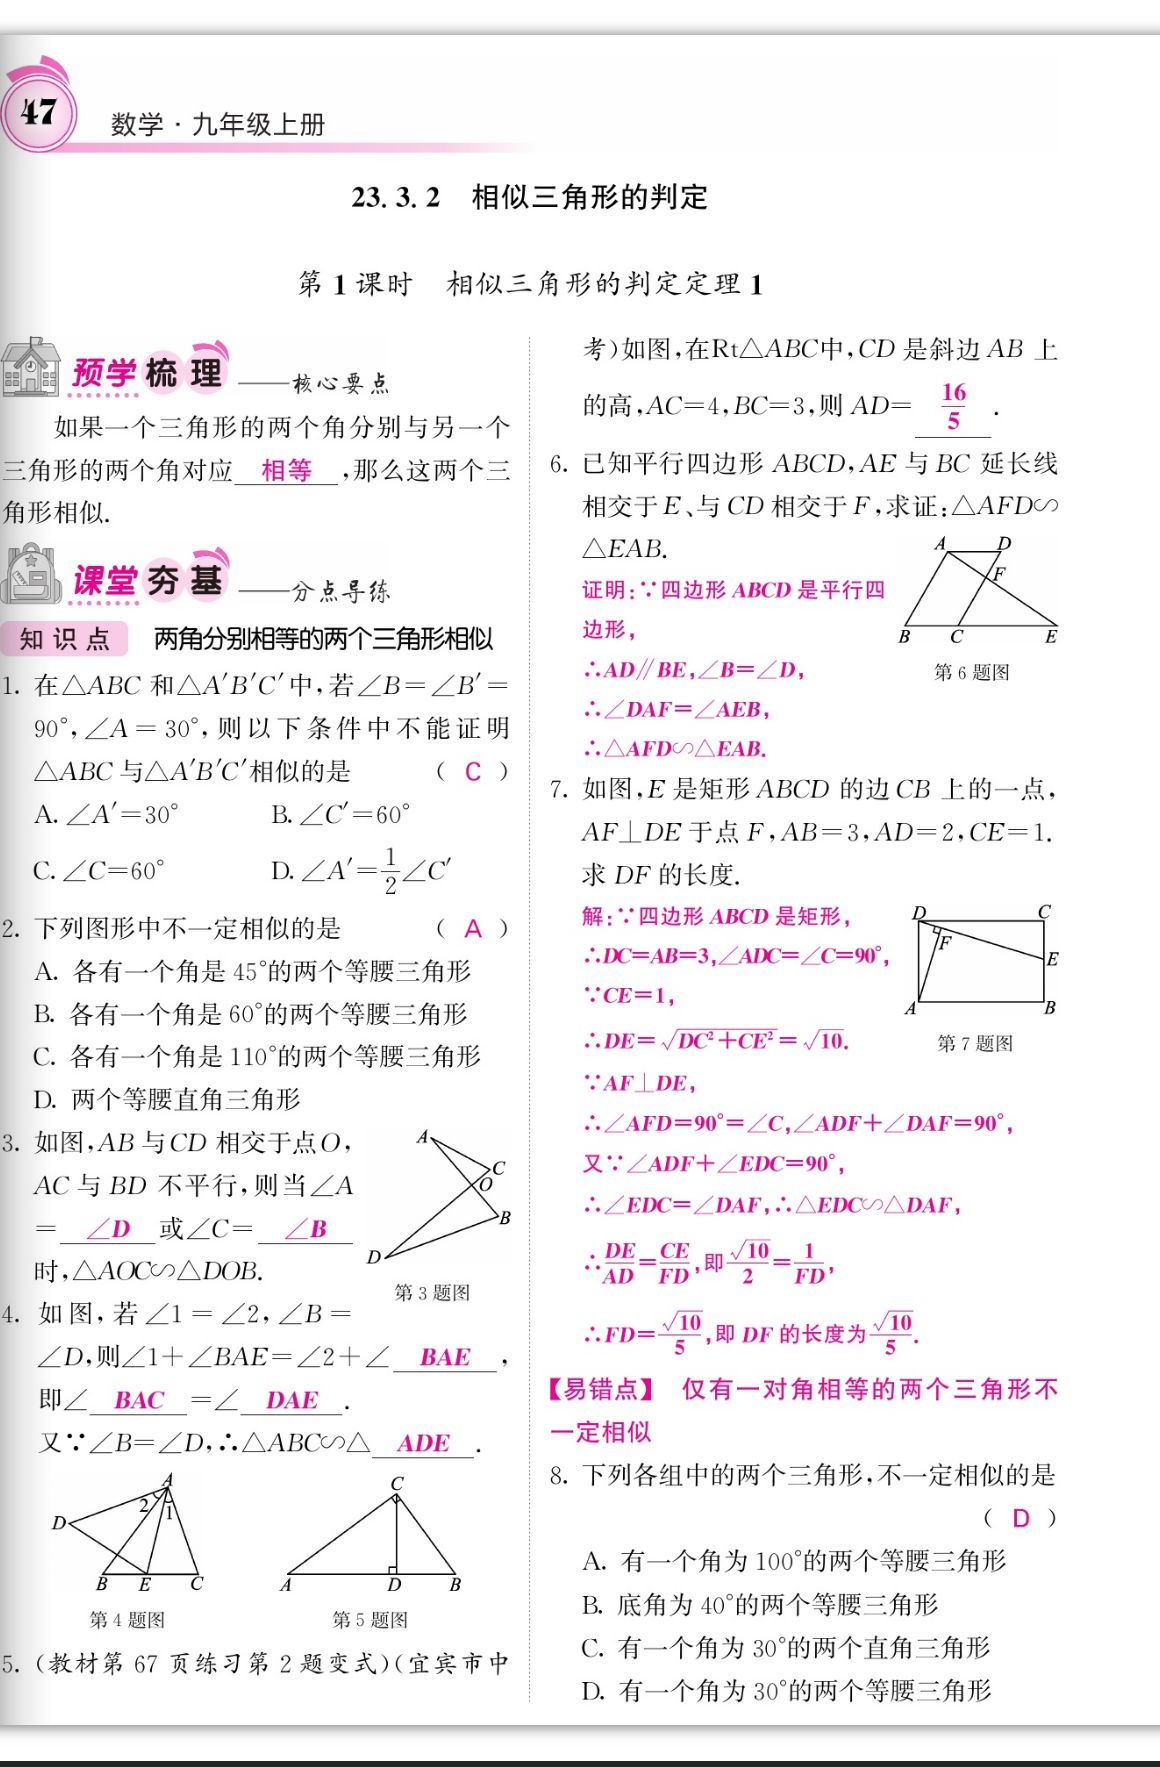 47
数学·九年级上册
23.3.2 相似三角形的判定
第1课时 相似三角形的判定定理1
预学梳理——核心要点
如果一个三角形的两个角分别与另一个
三角形的两个角对应 相等 ,那么这两个三
角形相似.
课堂夯基——分点导练
知识点 两角分别相等的两个三角形相似
1. 在△ABC 和△A′B′C′中,若∠B=∠B′=
90°,∠A=30°,则以下条件中不能证明
△ABC 与△A′B′C′相似的是 ( C )
A. ∠A′=30° B. ∠C′=60°
C. ∠C=60° D. ∠A′=1/2∠C′
2. 下列图形中不一定相似的是 ( A )
A. 各有一个角是 45°的两个等腰三角形
B. 各有一个角是 60°的两个等腰三角形
C. 各有一个角是 110°的两个等腰三角形
D. 两个等腰直角三角形
3. 如图,AB 与CD 相交于点O,
AC 与 BD 不平行,则当∠A
= ∠D 或∠C= ∠B
时,△AOC∽△DOB.
A
C
O
B
D
第 3 题图
4. 如图,若∠1=∠2,∠B=
∠D,则∠1+∠BAE=∠2+∠ BAE ,
即∠ BAC =∠ DAE .
又∵∠B=∠D,∴△ABC∽△ ADE .
A
2
1
D
B E C
第 4 题图
C
A D B
第 5 题图
5. (教材第 67 页练习第 2 题变式)(宜宾市中
考)如图,在Rt△ABC中,CD 是斜边 AB 上
的高,AC=4,BC=3,则 AD= 16/5 .
6. 已知平行四边形 ABCD,AE 与 BC 延长线
相交于 E、与 CD 相交于 F,求证:△AFD∽
△EAB.
证明:∵四边形 ABCD 是平行四
边形,
∴AD∥BE,∠B=∠D,
∴∠DAF=∠AEB,
∴△AFD∽△EAB.
A D
F
B C E
第 6 题图
7. 如图,E 是矩形 ABCD 的边 CB 上的一点,
AF⊥DE 于点 F,AB=3,AD=2,CE=1.
求 DF 的长度.
解:∵四边形 ABCD 是矩形,
∴DC=AB=3,∠ADC=∠C=90°,
∵CE=1,
∴DE=√(DC²+CE²)=√10.
∵AF⊥DE,
∴∠AFD=90°=∠C,∠ADF+∠DAF=90°,
又∵∠ADF+∠EDC=90°,
∴∠EDC=∠DAF,∴△EDC∽△DAF,
∴DE/AD=CE/FD,即√10/2=1/FD,
∴FD=√10/5,即 DF 的长度为√10/5.
D C
F
E
A B
第 7 题图
【易错点】 仅有一对角相等的两个三角形不
一定相似
8. 下列各组中的两个三角形,不一定相似的是
( D )
A. 有一个角为 100°的两个等腰三角形
B. 底角为 40°的两个等腰三角形
C. 有一个角为 30°的两个直角三角形
D. 有一个角为 30°的两个等腰三角形